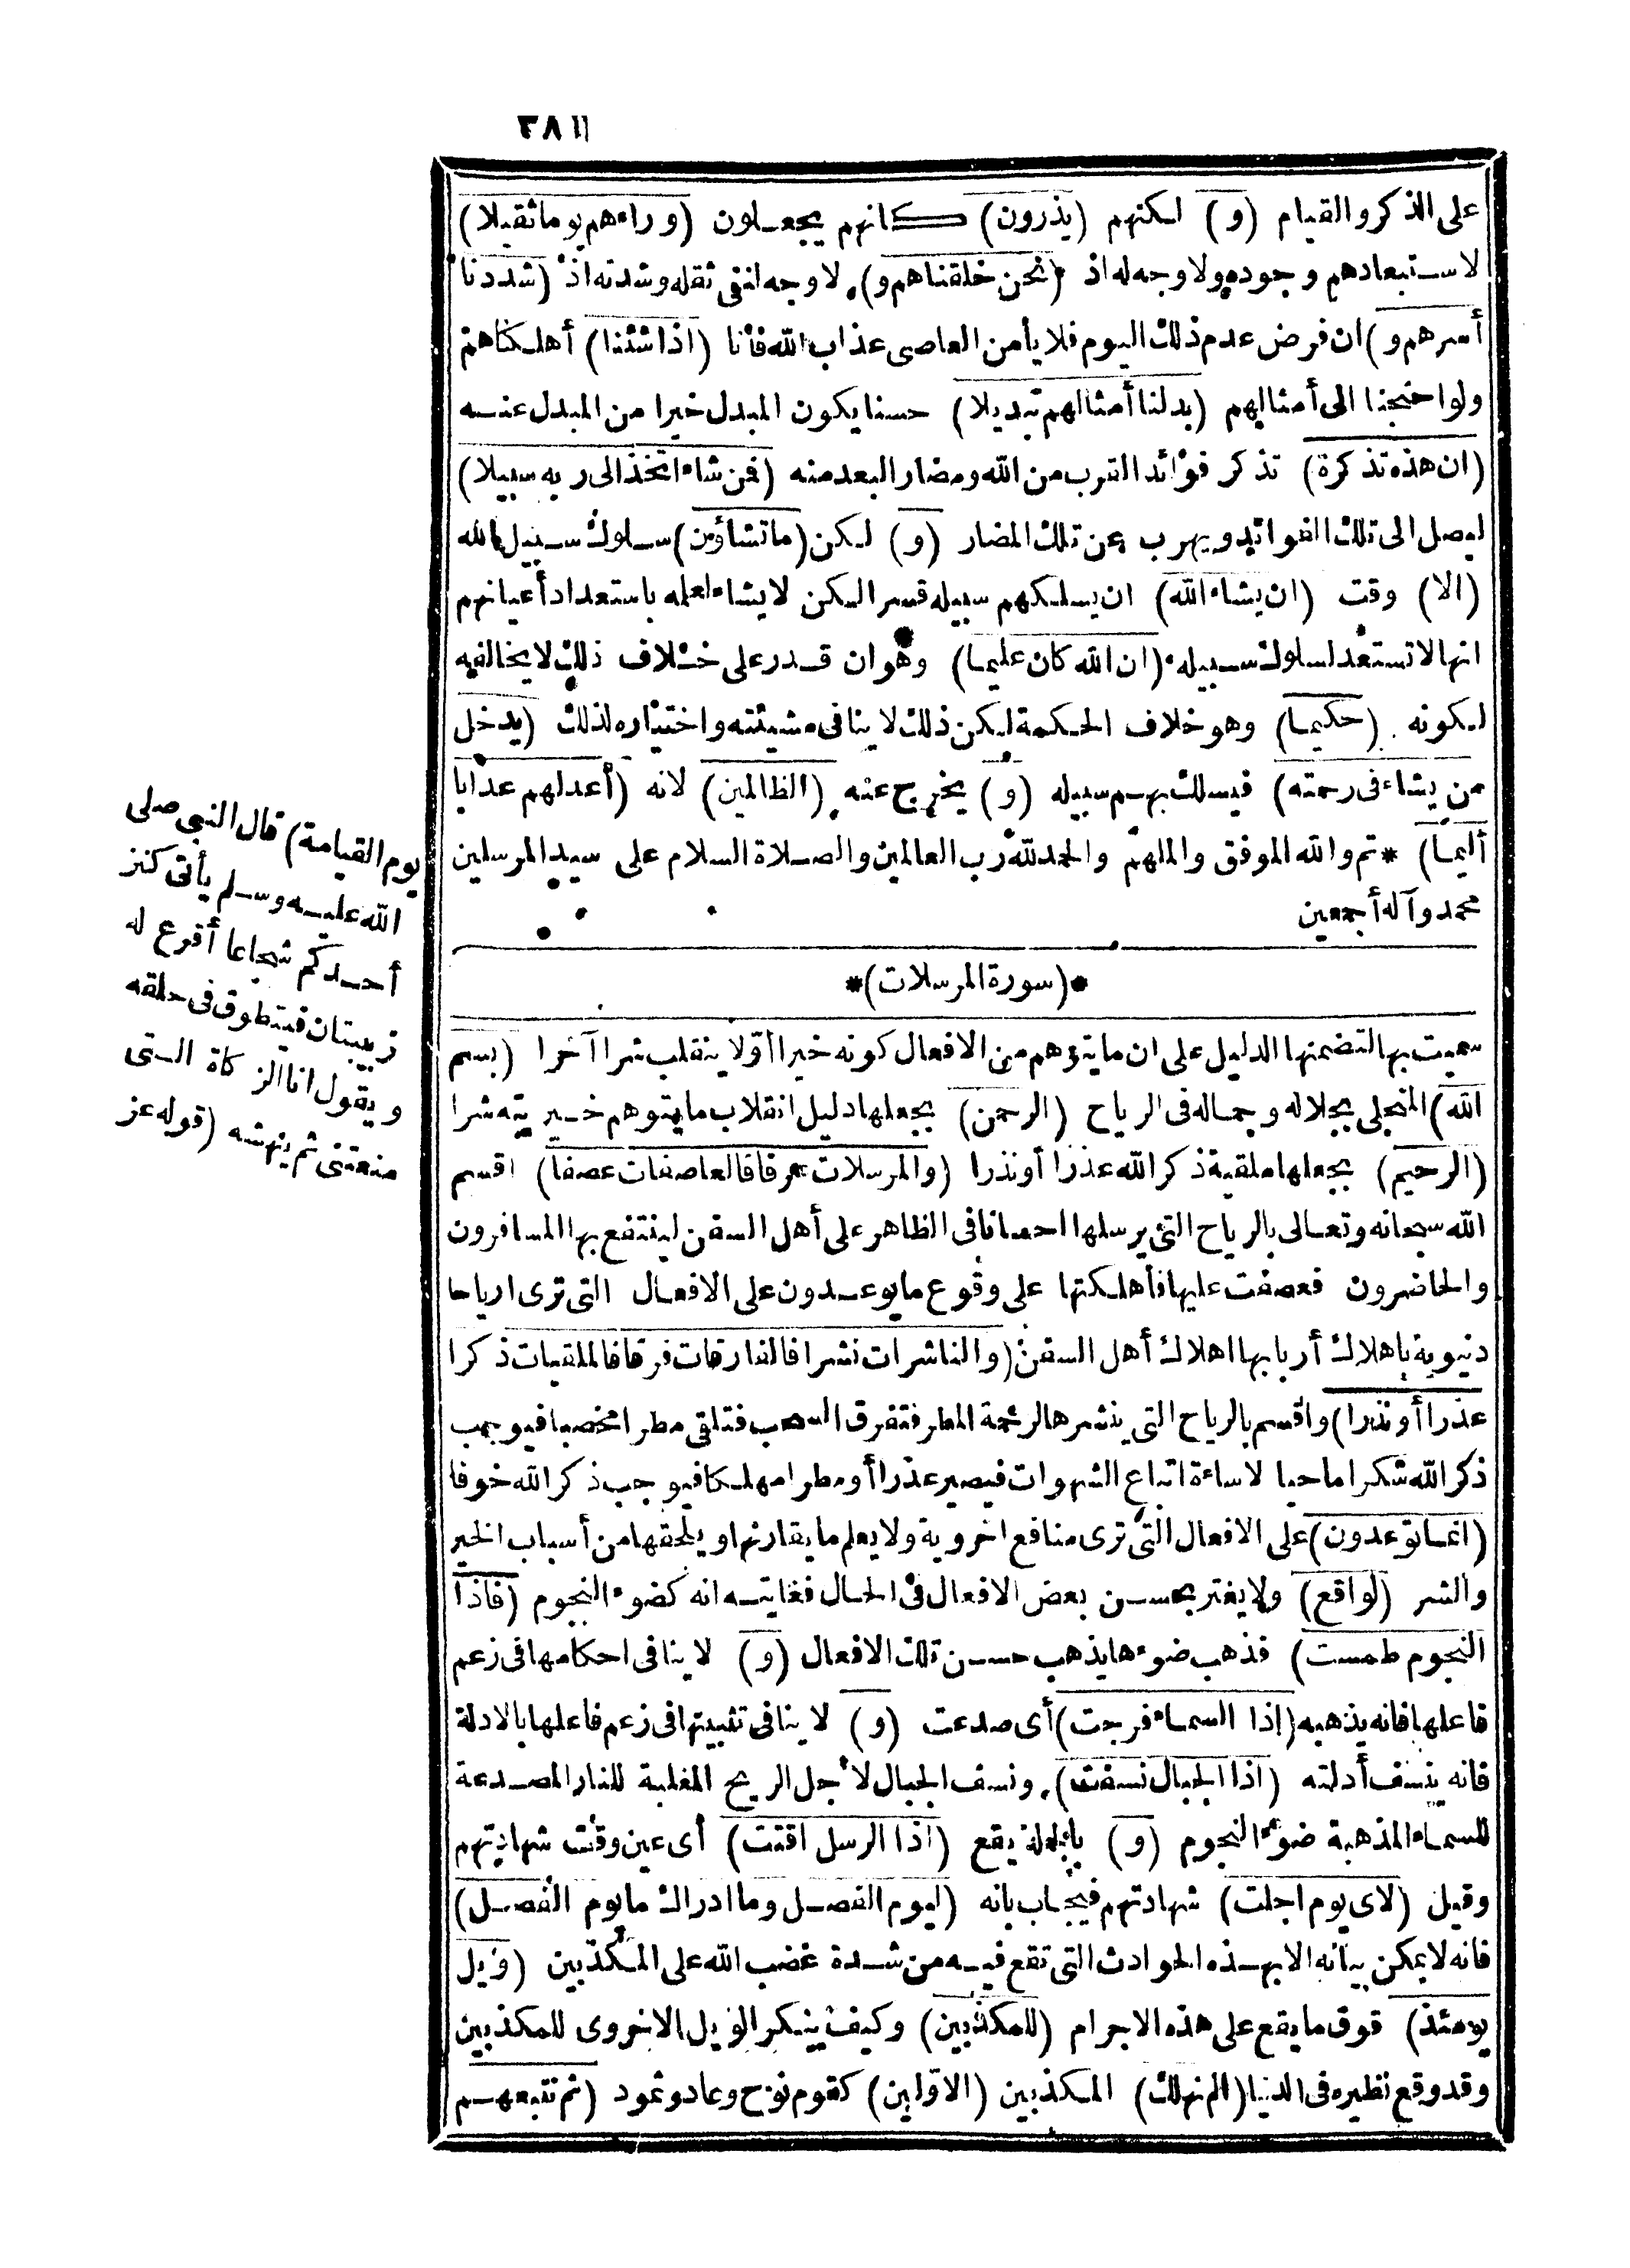 ٣٨١١
على الذكر والقيام (و) لكنهم (يذرون) كانهم يجعلون (وراءهم يوما ثقيلا)
لاستبعادهم وجوده ولا وجه له اذ (نحن خلقناهم و) لا وجه لنفى ثقله وشدته اذ (شددنا
أسرهم و) ان فرض عدم ذلك اليوم فلا يأمن العاصى عذاب الله فأنا (اذا شئنا) أهلكناهم
ولو احتجنا الى أمثالهم (بدلنا أمثالهم تبديلا) حسنا يكون المبدل خيرا من المبدل عنه
(ان هذه تذكرة) تذكر فوائد القرب من الله ومضار البعد منه (فمن شاء اتخذ الى ربه سبيلا)
ليوصل الى تلك الفوائد ويهرب عن تلك المضار (و) لكن (ما تشاؤن) سلوك سبيل الله
(الا) وقت (ان يشاء الله) ان يسلكهم سبيله قسرا لكن لا يشاء لعلمه باستعداد أعيانهم
انها لا تستعد لسلوك سبيله (ان الله كان عليما) وهو ان قدر على خلاف ذلك لا يخالفه
لكونه (حكيما) وهو خلاف الحكمة لكن ذلك لا ينافى مشيئته واختياره لذلك (يدخل
من يشاء فى رحمته) فيسلك بهم سبيله (و) يخرج عنه (الظالمين) لانه (أعد لهم عذابا
أليما) * تم والله الموفق والملهم والحمد لله رب العالمين والصلاة السلام على سيد المرسلين
محمد وآله أجمعين
*(سورة المرسلات)*
سميت بها لتضمنها الدليل على ان ما يتوهم من الافعال كونه خيرا أولا ينقلب شرا آخرا (بسم
الله) المتجلى بجلاله وجماله فى الرياح (الرحمن) بجعلها دليل انقلاب ما يتوهم خيريته شرا
(الرحيم) بجعلها ملقية ذكر الله عذرا أو نذرا (والمرسلات عرفا فالعاصفات عصفا) اقسم
الله سبحانه وتعالى بالرياح التى يرسلها احسانا فى الظاهر على أهل السفن لينتفع بها المسافرون
والحاضرون فعصفت عليها فأهلكتها على وقوع ما يوعدون على الافعال التى ترى ارباحا
دنيوية باهلاك أربابها اهلاك أهل السفن (والناشرات نشرا فالفارقات فرقا فالملقيات ذكرا
عذرا أو نذرا) واقسم بالرياح التى ينشرها لرحمة المطر فتفرق السحب فتلقى مطرا مخصبا فيوجب
ذكر الله شكرا ماحيا لاساءة اتباع الشهوات فيصير عذرا أو مطرا مهلكا فيوجب ذكر الله خوفا
(انما توعدون) على الافعال التى ترى منافع اخروية ولا يعلم ما يقارنها ويلحقها من أسباب الخير
والشر (لواقع) ولا يغتر بحسن بعض الافعال فى الحال فغايته انه كضوء النجوم (فاذا
النجوم طمست) فذهب ضوءها يذهب حسن تلك الافعال (و) لا ينافى احكامها فى زعم
فاعلها فانه يذهبه (اذا السماء فرجت) أى صدعت (و) لا ينافى تثبيتها فى زعم فاعلها بالادلة
فانه ينسف أدلته (اذا الجبال نسفت) ونسف الجبال لاجل الريح المغلبة للنار المصدعة
للسماء المذهبة ضوء النجوم (و) بالجملة يقع (اذا الرسل اقتت) أى عين وقت شهادتهم
وقيل (لاى يوم اجلت) شهادتهم فيجاب بانه (ليوم الفصل وما ادراك ما يوم الفصل)
فانه لا يمكن بيانه الا بهذه الحوادث التى تقع فيه من شدة غضب الله على المكذبين (ويل
يومئذ) فوق ما يقع على هذه الاجرام (للمكذبين) وكيف ينكر الويل الاخروى للمكذبين
وقد وقع نظيره فى الدنيا (الم نهلك) المكذبين (الاولين) كقوم نوح وعاد وثمود (ثم نتبعهم
يوم القيامة) قال النبى صلى
الله عليه وسلم يأتى كنز
أحدكم شجاعا أقرع له
زبيبتان فيتطوق فى حلقه
ويقول انا الزكاة التى
منعتنى ثم ينهشه (قوله عز